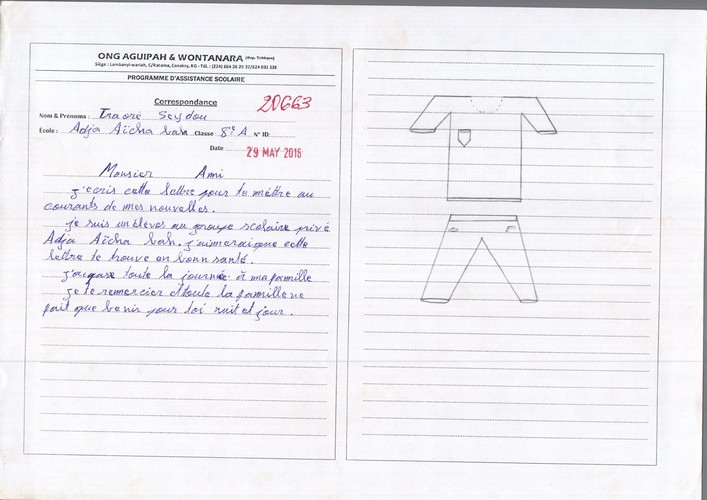 ONG AGUIPAH & WONTANARA (Rep. Tchèque)
Siège : Lambanyi-wariah, C/Ratoma, Conakry, RG - Tél. : (224) 664 26 29 37/624 031 338
PROGRAMME D'ASSISTANCE SCOLAIRE
Correspondance 20663
Nom & Prénoms : Traoré Seydou
École : Adja Aïcha bah Classe 8e A N° ID:
Date 29 MAY 2016
Monsieur Ami
j'ecris cette lettre pour te méttre au
courants de mes nouvelles.
je suis un élèves au groupe scolaire privé
Adja Aïcha bah. j'aimerai que cette
lettre te trouve en bonn santé.
toute la journée à ma famille
je te remercier et toute la famille ne
fait que benir pour toi nuit et jour.